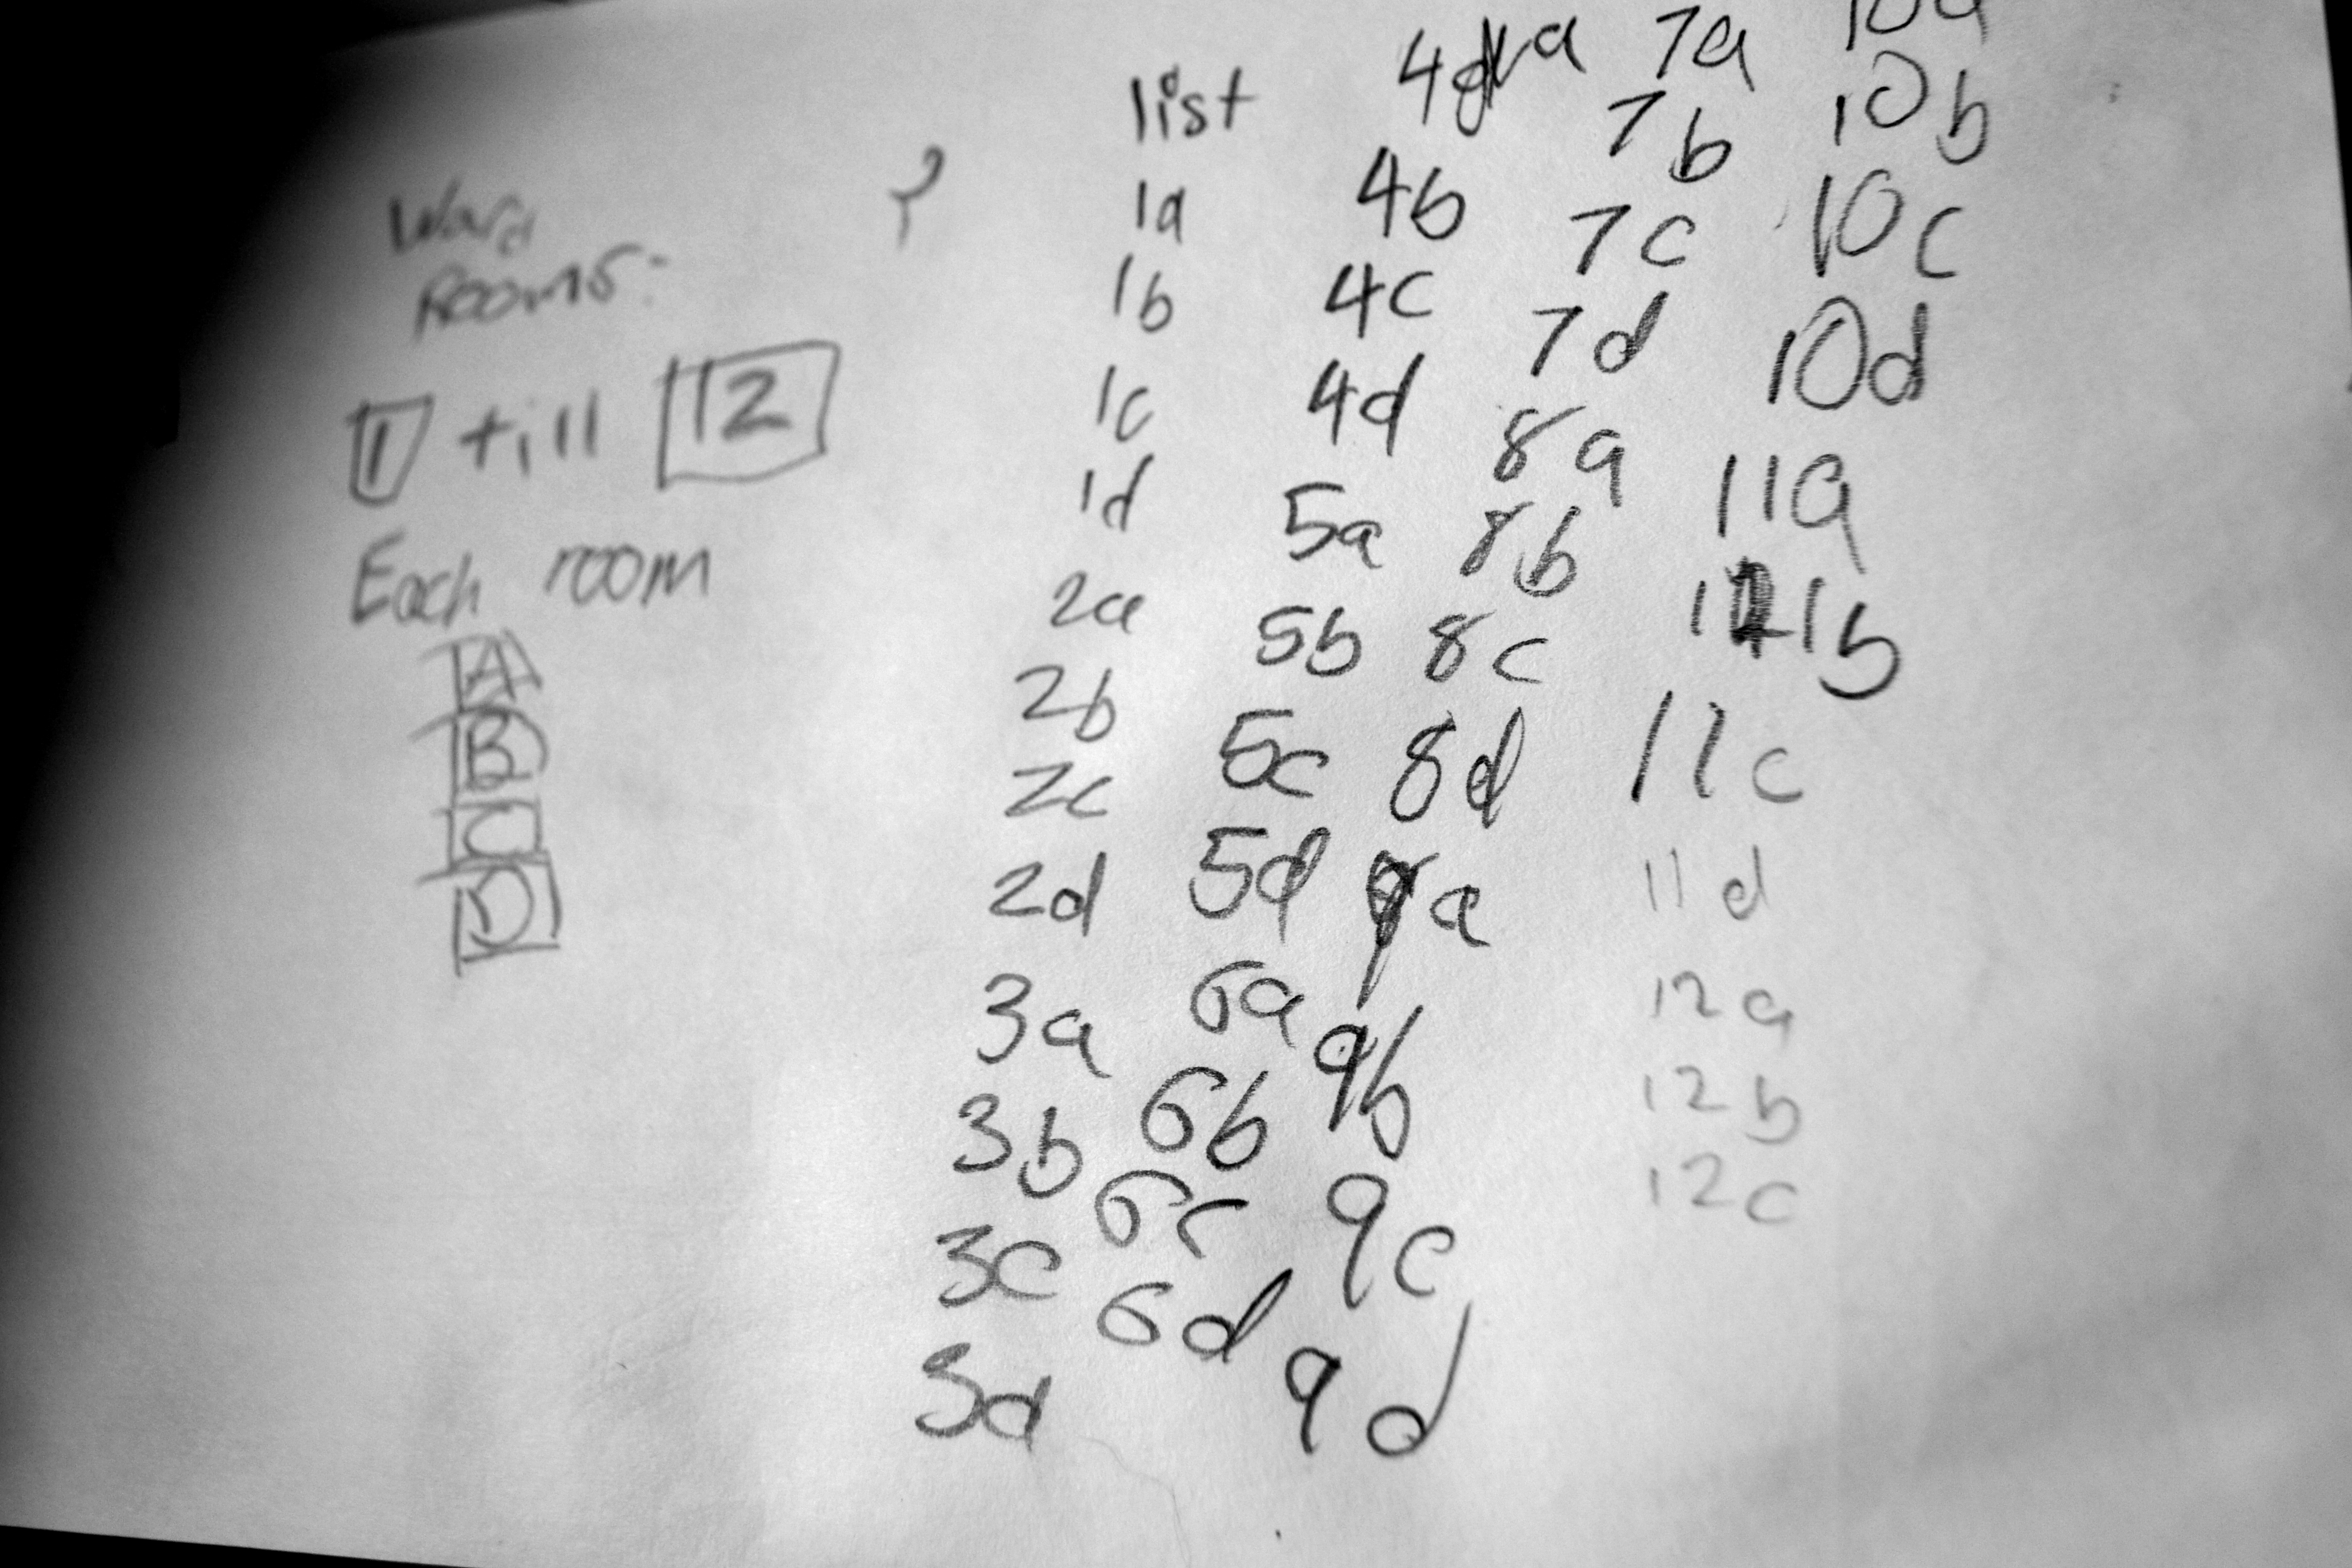 Ward
Rooms:
1 till 12
Each room
A
B
C
D
?
list
1a
1b
1c
1d
2a
2b
2c
2d
3a
3b
3c
3d
4a
4b
4c
4d
5a
5b
5c
5d
6a
6b
6c
6d
7a
7b
7c
7d
8a
8b
8c
8d
9a
9b
9c
9d
10a
10b
10c
10d
11a
11b
11c
11d
12a
12b
12c